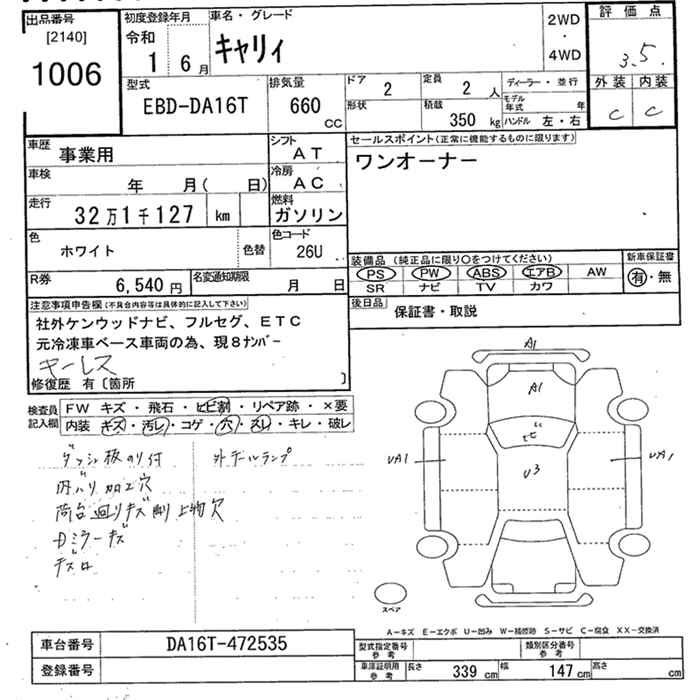 出品番号
[2140]
1006
初度登録年月
令和
1 6月
車名・グレード
キャリィ
2WD
・
4WD
評価点
3.5
外装 内装
C C
型式
EBD-DA16T
排気量
660
CC
ドア
2
形状
定員
2
人
積載
350 kg
ディーラー・並行
モデル年式 年
ハンドル 左・右
車歴 事業用
シフト
AT
車検 年 月( 日)
冷房
AC
走行
32万1千127 km
燃料
ガソリン
色
ホワイト
色替
色コード
26U
R券
6,540円
名変通知期限
月 日
セールスポイント(正常に機能するものに限ります)
ワンオーナー
装備品 (純正品に限り○をつけてください)
PS PW ABS エアB AW
SR ナビ TV カワ
新車保証書
有・無
後日品
保証書・取説
注意事項申告欄(不具合内容等は具体的に記入して下さい)
社外ケンウッドナビ、フルセグ、ETC
元冷凍車ベース車両の為、現8ナンバー
キーレス
修復歴 有〔箇所 〕
検査員記入欄
FW キズ・飛石・ヒビ割・リペア跡・×要
内装 キズ・汚レ・コゲ・穴・スレ・キレ・破レ
ダッシュ板のり付
外デールランプ
内バリ加工穴
荷台廻りキズ 上物欠
Dミラーキズ
A1
A1
ヒビ
U3
UA1
UA1
スペア
A-キズ E-エクボ U-凹み W-補修跡 S-サビ C-腐食 XX-交換済
車台番号
DA16T-472535
登録番号
型式指定番号
参考
類別区分番号
参考
車庫証明用
参考
長さ 339 cm
幅 147 cm
高さ cm